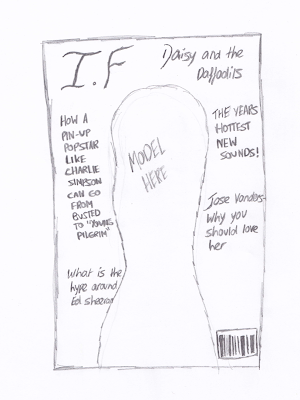 I.F
Daisy and the
Daffodils
HOW A
PIN-UP
POPSTAR
LIKE
CHARLIE
SIMPSON
CAN GO
FROM
BUSTED
TO "YOUNG
PILGRIM"
What is the
hype around
Ed Sheeran
MODEL
HERE
THE YEARS
HOTTEST
NEW
SOUNDS!
Jose Vanders-
Why you
should love
her